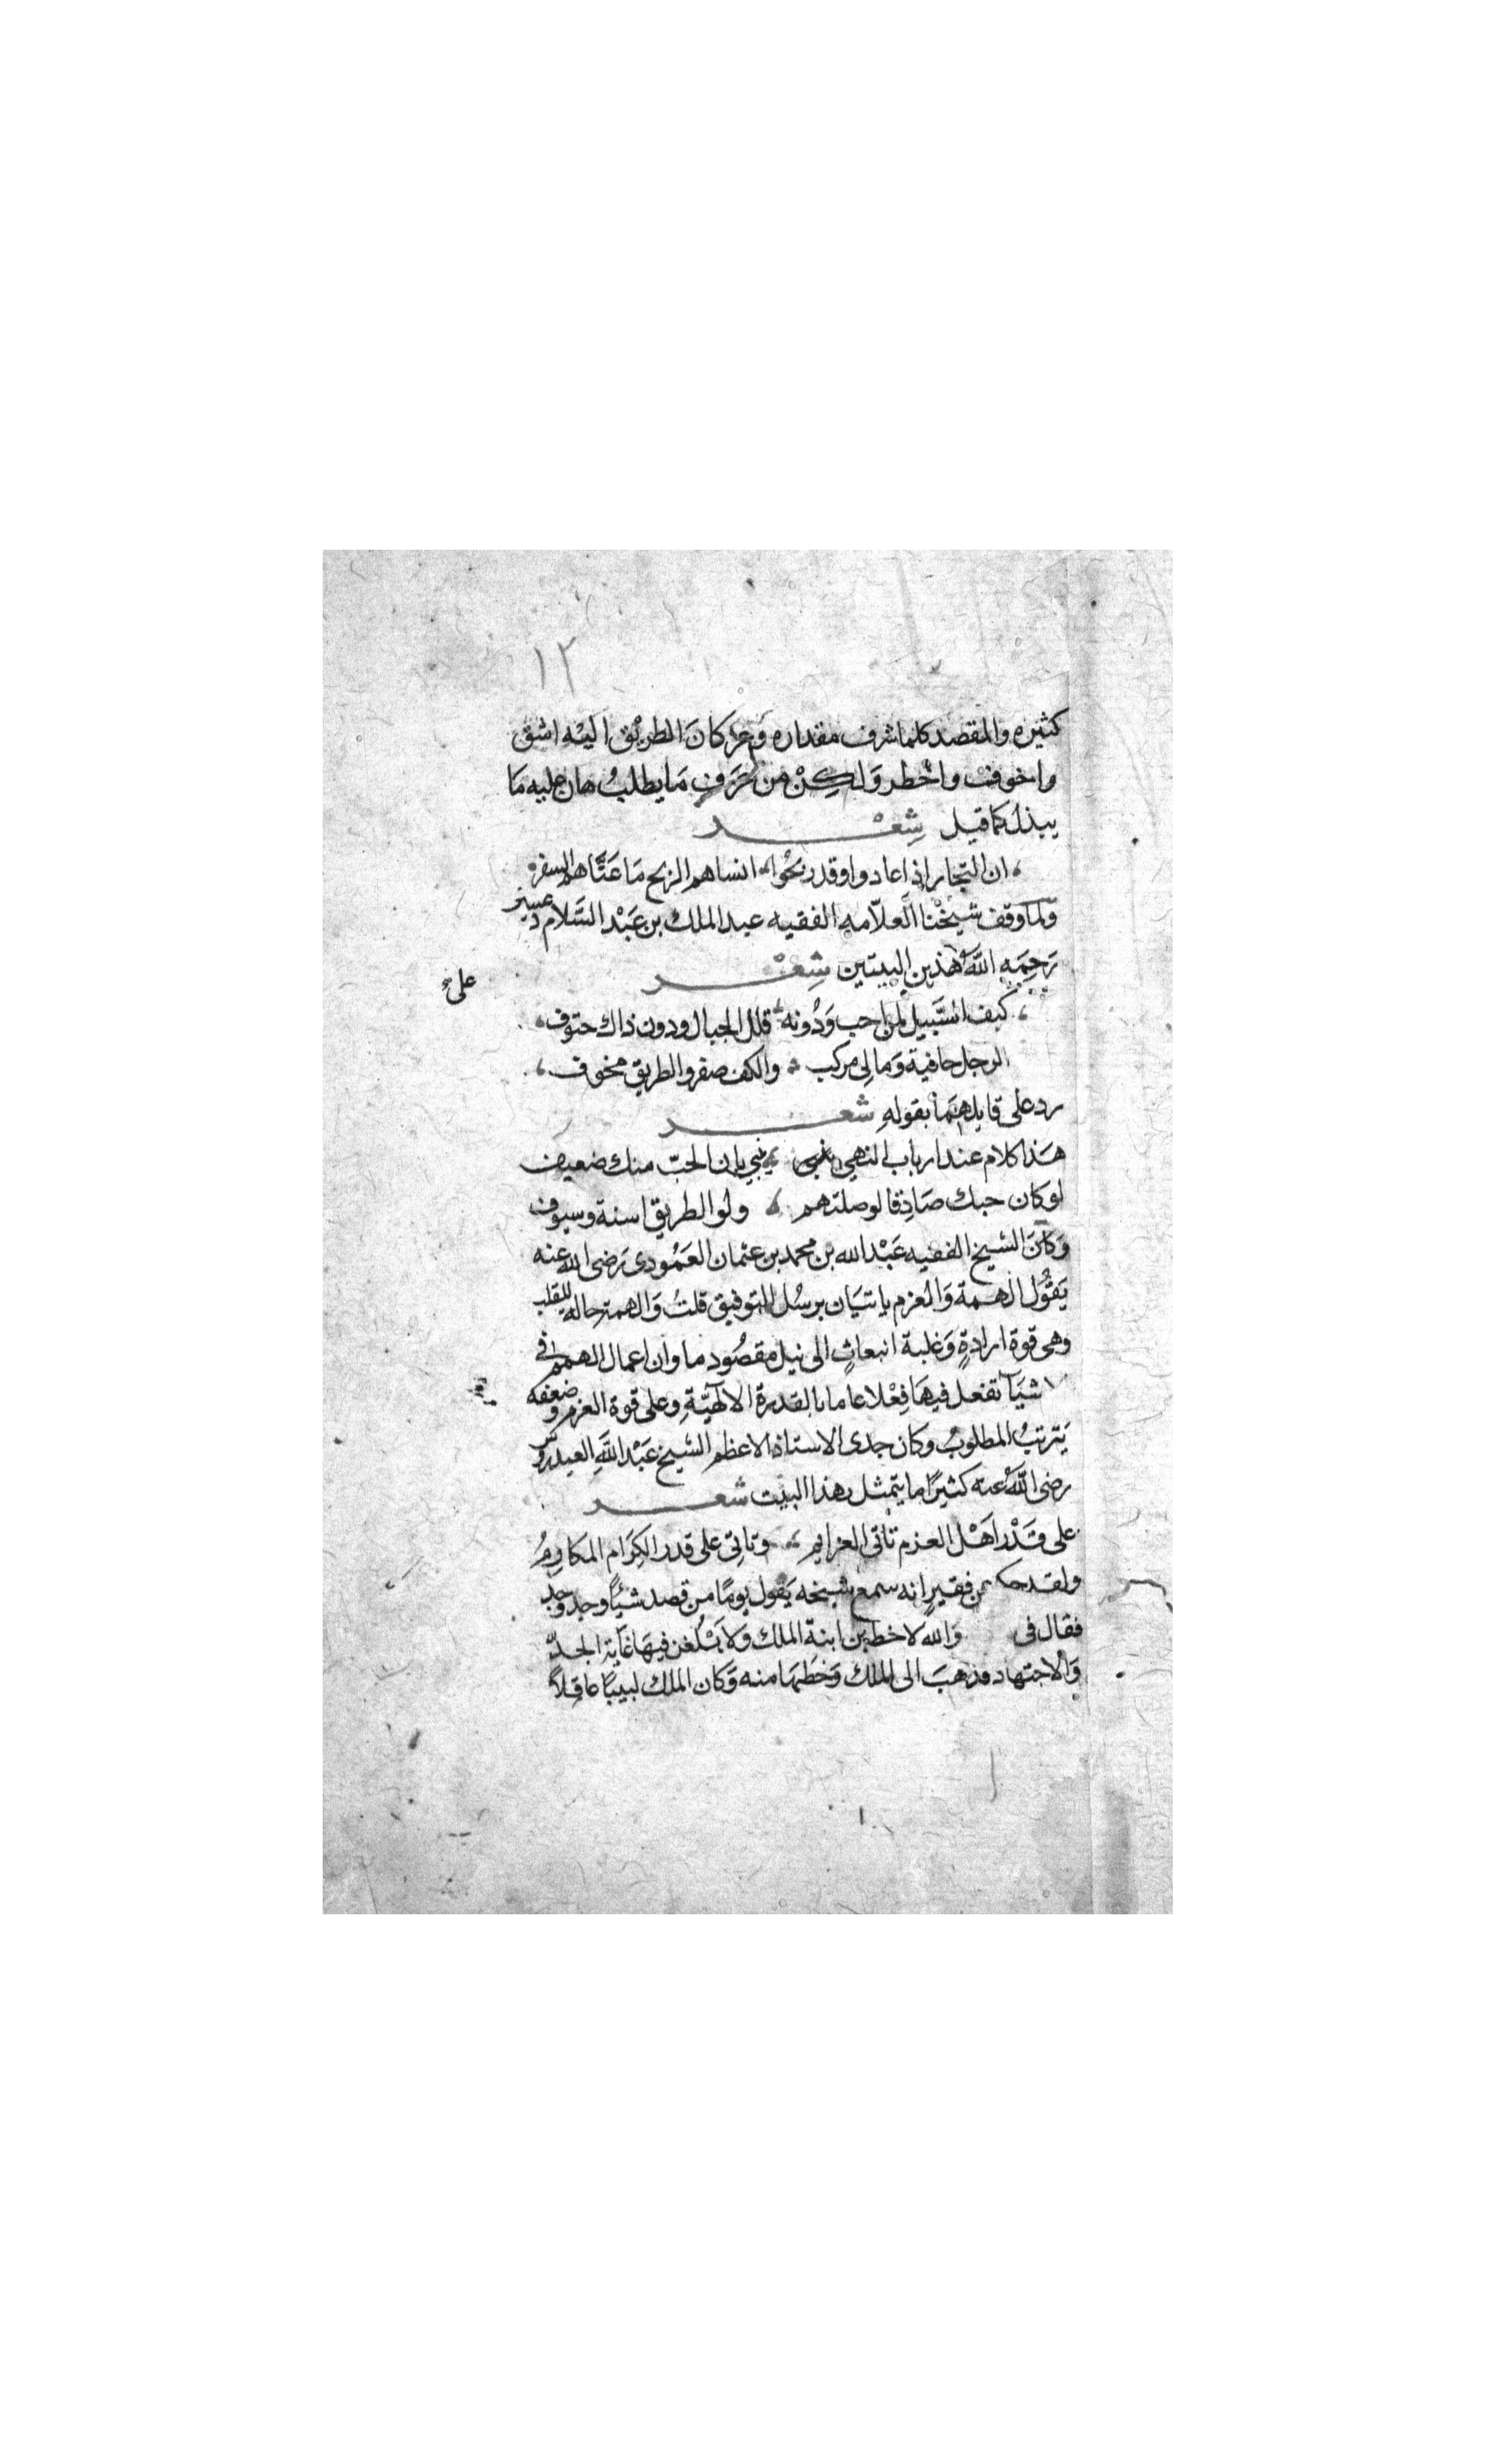 ١٢
كثيره والمقصد كلما شرف مقداره وَعز كانَ الطريْق اليْه اشق
واخوف واخطر وَلكِنْ من عَرَف مَا يطلبُ هان عليه مَا
يبذل كما قيل شِعْر
ان التجار اذا عادوا وقد ربحُوا انساهم الربح مَا عَنَّاهم السفر
وَلما وقف شيخْنا العلاّمه الفقيه عبد الملك بن عَبْد السَّلام دعسين
رَحِمَه اللَّهُ هذين البيتين شِعْر
على
كيف السَّبيل لمن احب وَدُونه قلل الجبال ودون ذاك حتوف
الرجل حافية وَمالي مركب والكف صفر والطريق مخوف
رد على قايلهمَا بقولهِ شعر
هَذا كلام عند ارباب النهي ينبي بان الحبّ منك ضعيف
لو كان حبك صَادِقا لوصلتهم ولو الطريق اسنة وسيوف
وَكانَ الشيخ الفقيه عَبْد الله بن محمد بن عثمان العَمُودى رَضى الله عنه
يَقُوُل الهمة وَالعزم ياتيَان برسُل التوفيق قلتُ وَالهمة حاله للقلب
وهى قوة ارادةٍ وَغلبة انبعاثٍ الى نيل مقصُود ما وان اعمال الهمم فى
الاشيَآ تفعل فيهَا فِعْلا عاما بالقدرة الالهيّةِ وعلى قوة العزم وضعفه
يَترتبُ المطلوبُ وكان جدى الاستاذ الاعظم الشيخ عَبْد اللَّهِ العيدروس
رضى اللَّهُ عنه كثيرًا ما يتمثل بهذا البيْت شعر
على قَدْر اهْل العزم تاتى العزايم وتاتِى على قدر الكِرَام المكارمُ
ولقد حكى عن فقيرٍ انه سمع شيخه يَقول يومًا من قصد شيًّا وجد وجد
فقال فى وَالله لاخطبن ابنة الملك وَلابْلُغن فيهَا غاية الجدّ
وَالاجتهاد فذهبَ الى الملك وَخطبهَا منه وَكان الملك لبيبًا عاقلاً